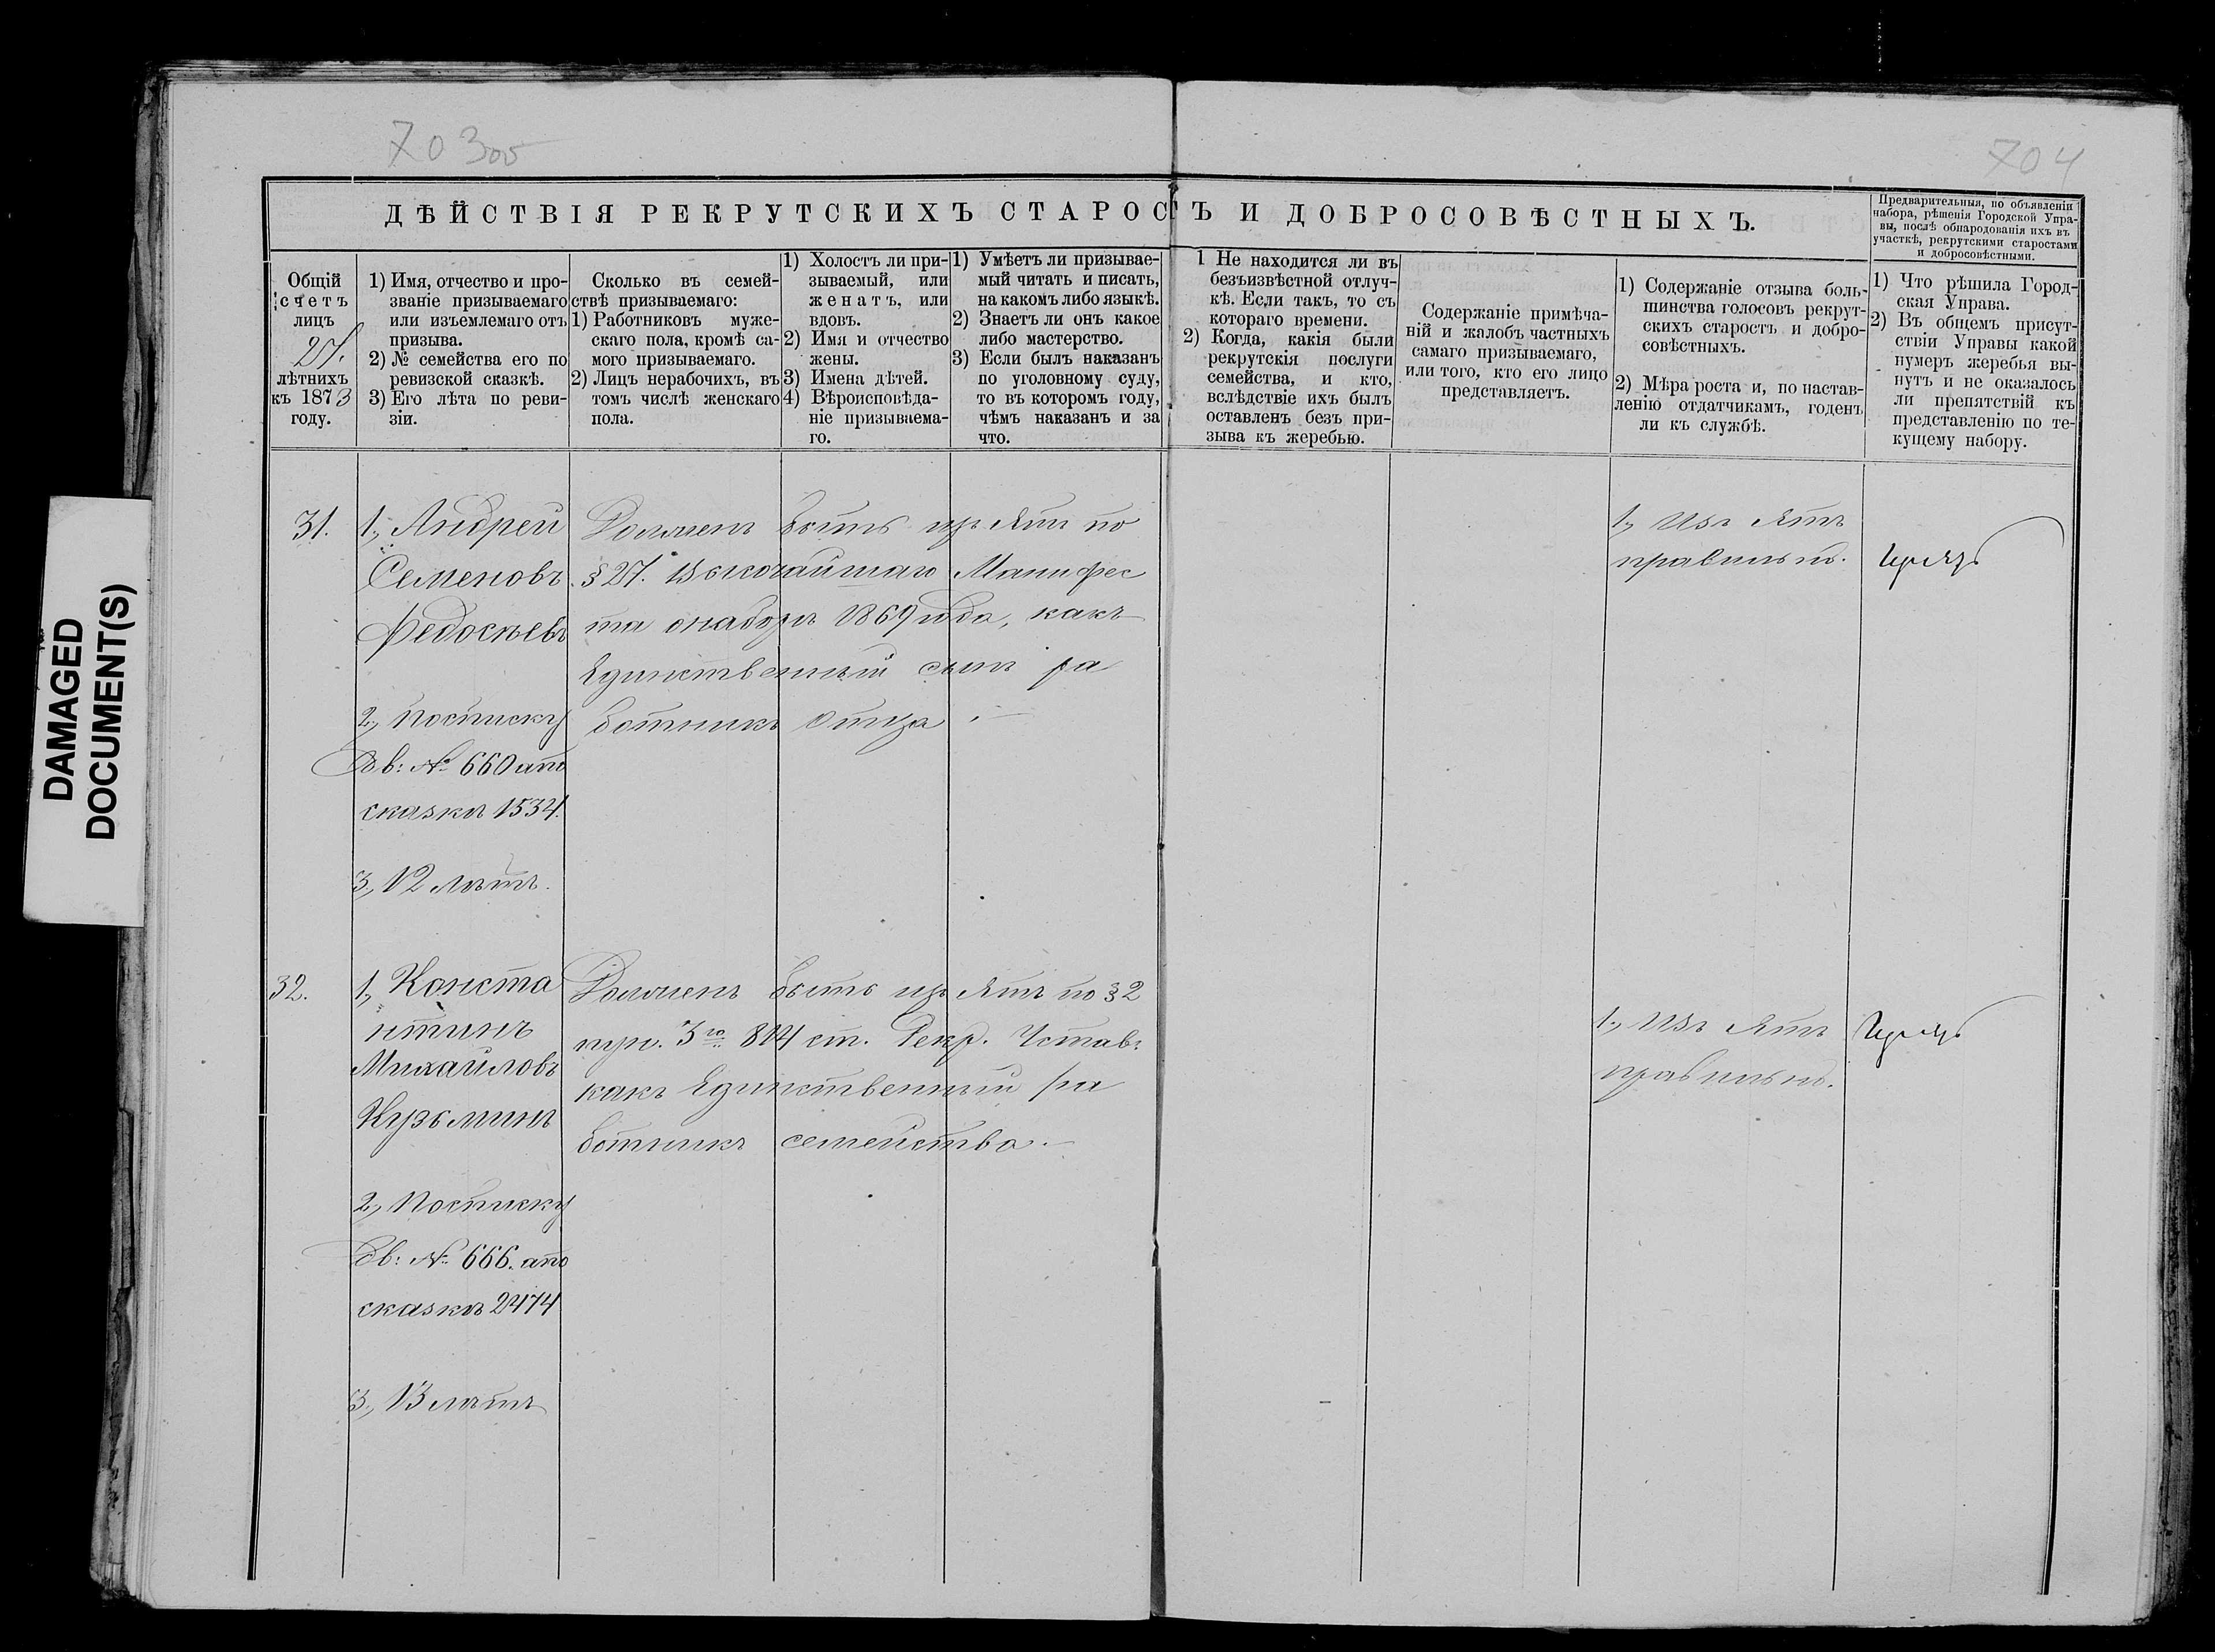 703об
704
DAMAGED
DOCUMENT(S)
ДѢЙСТВІЯ РЕКРУТСКИХЪ СТАРОСТЪ И ДОБРОСОВѢСТНЫХЪ.
Предварительныя, по объявленіи
набора, рѣшенія Городской Упра-
вы, послѣ обнародованія ихъ въ
участкѣ, рекрутскими старостами
и добросовѣстными.
Общій
счетъ
лицъ
27.
лѣтнихъ
къ 1873
году.
1) Имя, отчество и про-
званіе призываемаго
или изъемлемаго отъ
призыва.
2) № семейства его по
ревизской сказкѣ.
3) Его лѣта по реви-
зіи.
Сколько въ семей-
ствѣ призываемаго:
1) Работниковъ муже-
скаго пола, кромѣ са-
мого призываемаго.
2) Лицъ нерабочихъ, въ
томъ числѣ женскаго
пола.
1) Холостъ ли при-
зываемый, или
женатъ, или
вдовъ.
2) Имя и отчество
жены.
3) Имена дѣтей.
4) Вѣроисповѣда-
ніе призываема-
го.
1) Умѣетъ ли призывае-
мый читать и писать,
на какомъ либо языкѣ.
2) Знаетъ ли онъ какое
либо мастерство.
3) Если былъ наказанъ
по уголовному суду,
то въ которомъ году,
чѣмъ наказанъ и за
что.
1 Не находится ли въ
безъизвѣстной отлуч-
кѣ. Если такъ, то съ
котораго времени.
2) Когда, какія были
рекрутскія послуги
семейства, и кто,
вслѣдствіе ихъ былъ
оставленъ безъ при-
зыва къ жеребью.
Содержаніе примѣча-
ній и жалобъ частныхъ
самаго призываемаго,
или того, кто его лицо
представляетъ.
1) Содержаніе отзыва боль-
шинства голосовъ рекрут-
скихъ старостъ и добро-
совѣстныхъ.
2) Мѣра роста и, по настав-
ленію отдатчикамъ, годенъ
ли къ службѣ.
1) Что рѣшила Город-
ская Управа.
2) Въ общемъ присут-
ствіи Управы какой
нумеръ жеребья вы-
нутъ и не оказалось
ли препятствій къ
представленію по те-
кущему набору.
31.
1., Андрей
Семеновъ
Федосѣевъ
2., По списку
Дв: № 660 а по
сказкѣ 1534.
3., 12 лѣтъ.
Долженъ быть изъятъ по
§ 27. Высочайшаго Манифес
та о наборѣ 1869 года, какъ
Единственный сынъ ра
ботникъ отца.—
1., Изъятъ
правильно.
32.
1., Конста
нтинъ
Михайловъ
Кузьминъ
2., По списку
Дв: № 666. а по
сказкѣ 2474
3., 13 лѣтъ
Долженъ быть изъятъ по § 2
пун. 3го 814 ст. Рекр. Устав:
какъ Единственный ра
ботникъ семейства.—
1., Изъятъ
правильно.